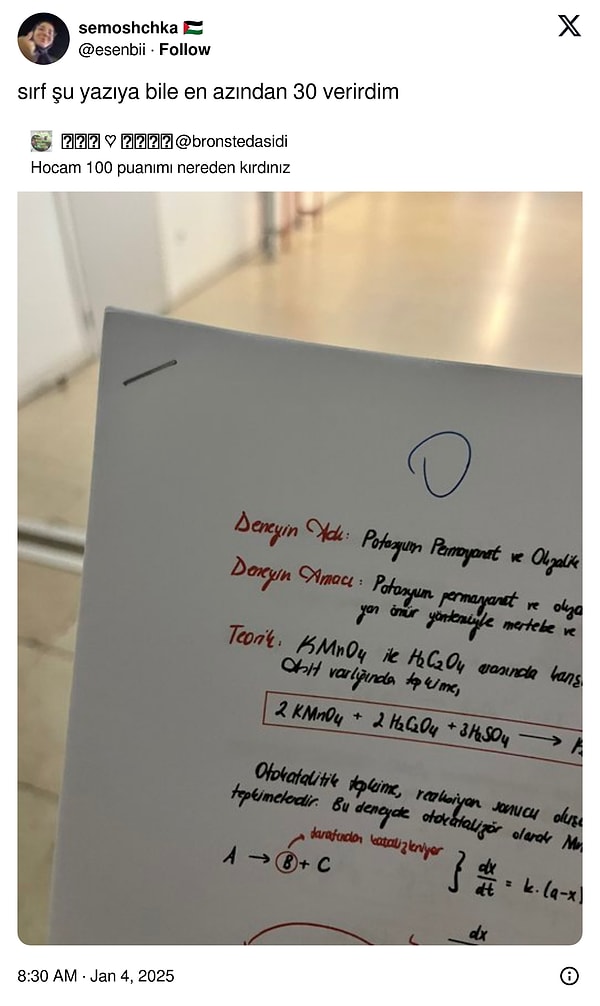 semoshchka 🇵🇸
@esenbii · Follow
sırf şu yazıya bile en azından 30 verirdim
♡ @bronstedasidi
Hocam 100 puanımı nereden kırdınız
0
Deneyin Adı: Potasyum Permanganat ve Okzalik
Deneyin Amacı: Potasyum permanganat ve okza
yarı ömür yöntemiyle mertebe ve
Teorik: KMnO4 ile H2C2O4 arasında
Asit varlığında tepkime,
2 KMnO4 + 2 H2C2O4 + 3H2SO4 →
Otokatalitik tepkime, reaksiyon sonucu oluşa
tepkimelerdir. Bu deneyde otokatalizör olarak Mn
tarafından katalizleniyor
A → B + C } dx/dt = k.(a-x)
dx
8:30 AM · Jan 4, 2025